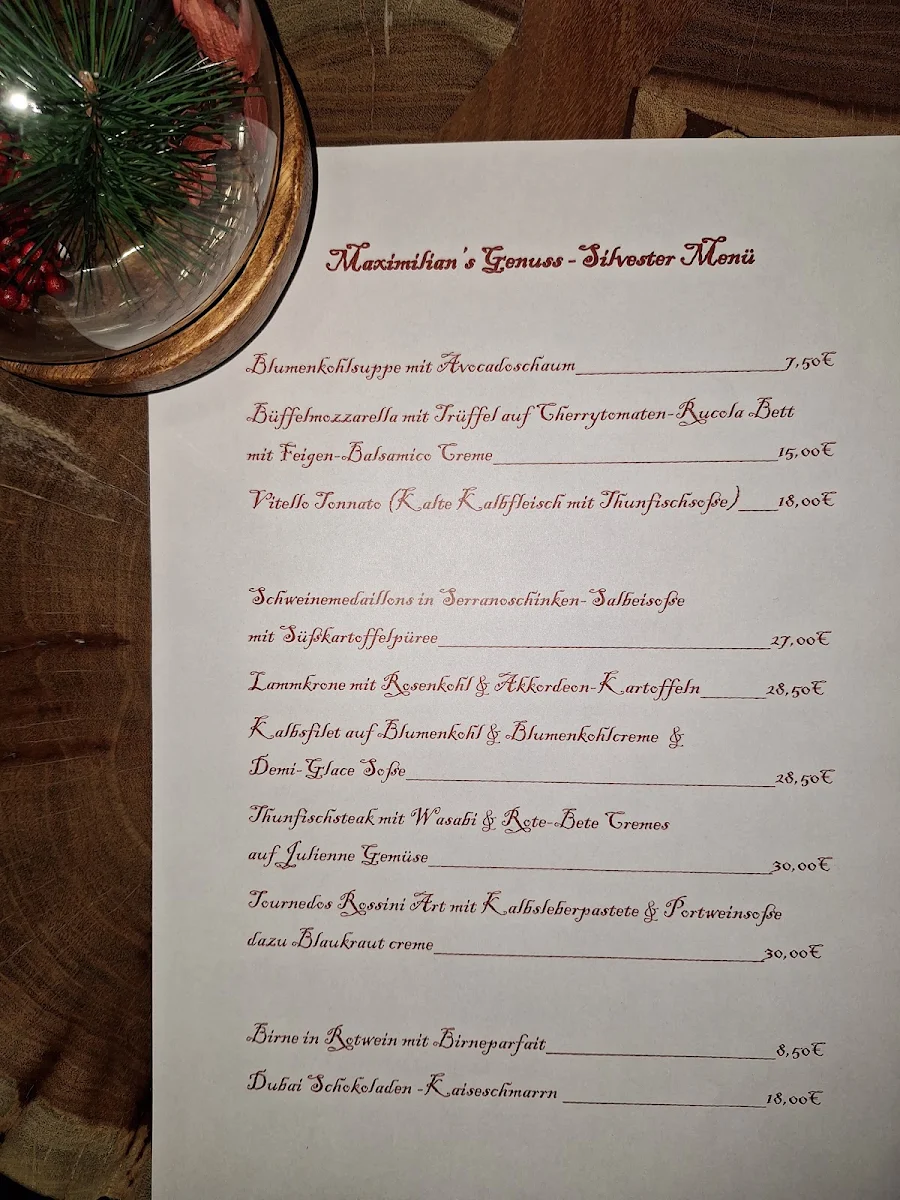 Maximilian's Genuss - Silvester Menü
Blumenkohlsuppe mit Avocadoschaum 7,50€
Büffelmozzarella mit Trüffel auf Cherrytomaten-Rucola Bett
mit Feigen-Balsamico Creme 15,00€
Vitello Tonnato (Kalte Kalbfleisch mit Thunfischsoße) 18,00€
Schweinemedaillons in Serranoschinken- Salbeisoße
mit Süßkartoffelpüree 27,00€
Lammkrone mit Rosenkohl & Akkordeon-Kartoffeln 28,50€
Kalbsfilet auf Blumenkohl & Blumenkohlcreme &
Demi-Glace Soße 28,50€
Thunfischsteak mit Wasabi & Rote-Bete Cremes
auf Julienne Gemüse 30,00€
Tournedos Rossini Art mit Kalbsleberpastete & Portweinsoße
dazu Blaukraut creme 30,00€
Birne in Rotwein mit Birneparfait 8,50€
Dubai Schokoladen -Kaiseschmarrn 18,00€